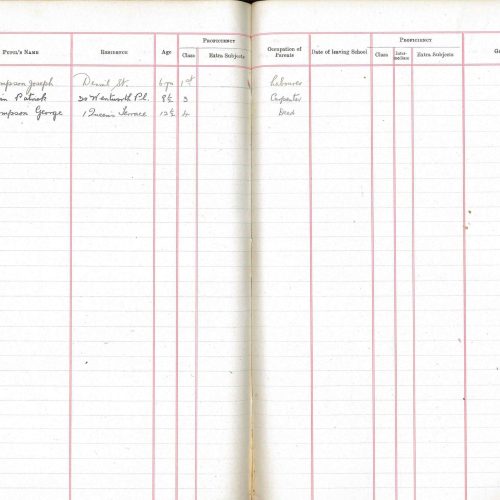 PROFICIENCY PROFICIENCY
PUPIL'S NAME RESIDENCE Age Class Extra Subjects Occupation of Parents Date of leaving School Class Inter-mediate Extra Subjects
mpson Joseph Denzil St. 6 yrs 1st Labourer
in Patrick 30 Wentworth Pl. 8½ 3 Carpenter
mpson George 1 Queen's Terrace 12½ 4 Dead